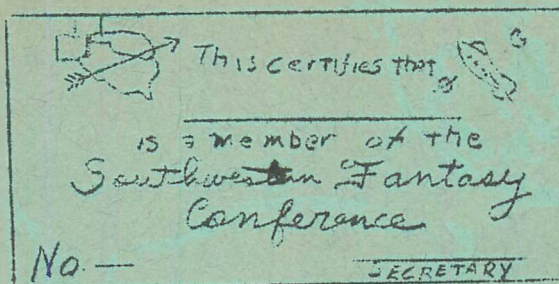 This certifies that
is a member of the
Southwestern Fantasy
Conference
No. —
SECRETARY